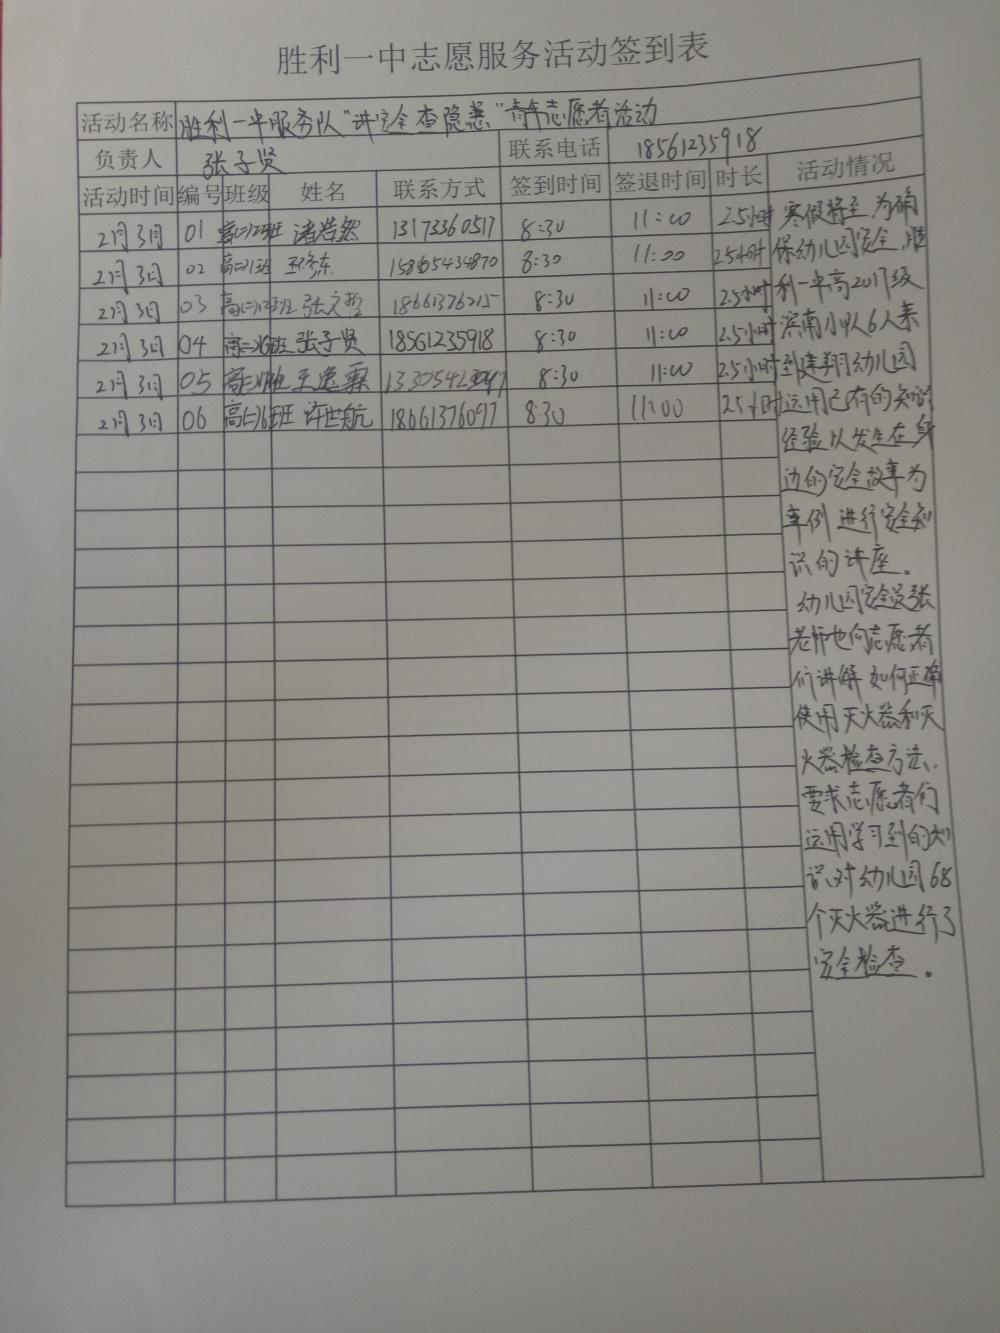 胜利一中志愿服务活动签到表
活动名称 胜利一中服务队"讲安全查隐患"青年志愿者活动
负责人 张子贤 联系电话 18561235918
活动时间 编号 班级 姓名 联系方式 签到时间 签退时间 时长 活动情况
2月3日 01 高二12班 诸浩然 13173360517 8:30 11:00 2.5小时
2月3日 02 高二1班 15865434870 8:30 11:00 2.5小时
2月3日 03 高二12班 张文哲 18661376215 8:30 11:00 2.5小时
2月3日 04 高二26班 张子贤 18561235918 8:30 11:00 2.5小时
2月3日 05 王逸霖 8:30 11:00 2.5小时
2月3日 06 高二16班 许世航 18661376097 8:30 11:00 2.5小时
寒假将至,为确
保幼儿园安全,胜
利一中高2017级
滨南小队6人来
到建翔幼儿园
运用已有的知识
经验以发生在身
边的安全故事为
案例进行安全知
识的讲座。
幼儿园安全员张
老师也向志愿者
们讲解如何正确
使用灭火器和灭
火器检查方法,
要求志愿者们
运用学习到的知
识对幼儿园68
个灭火器进行了
安全检查。